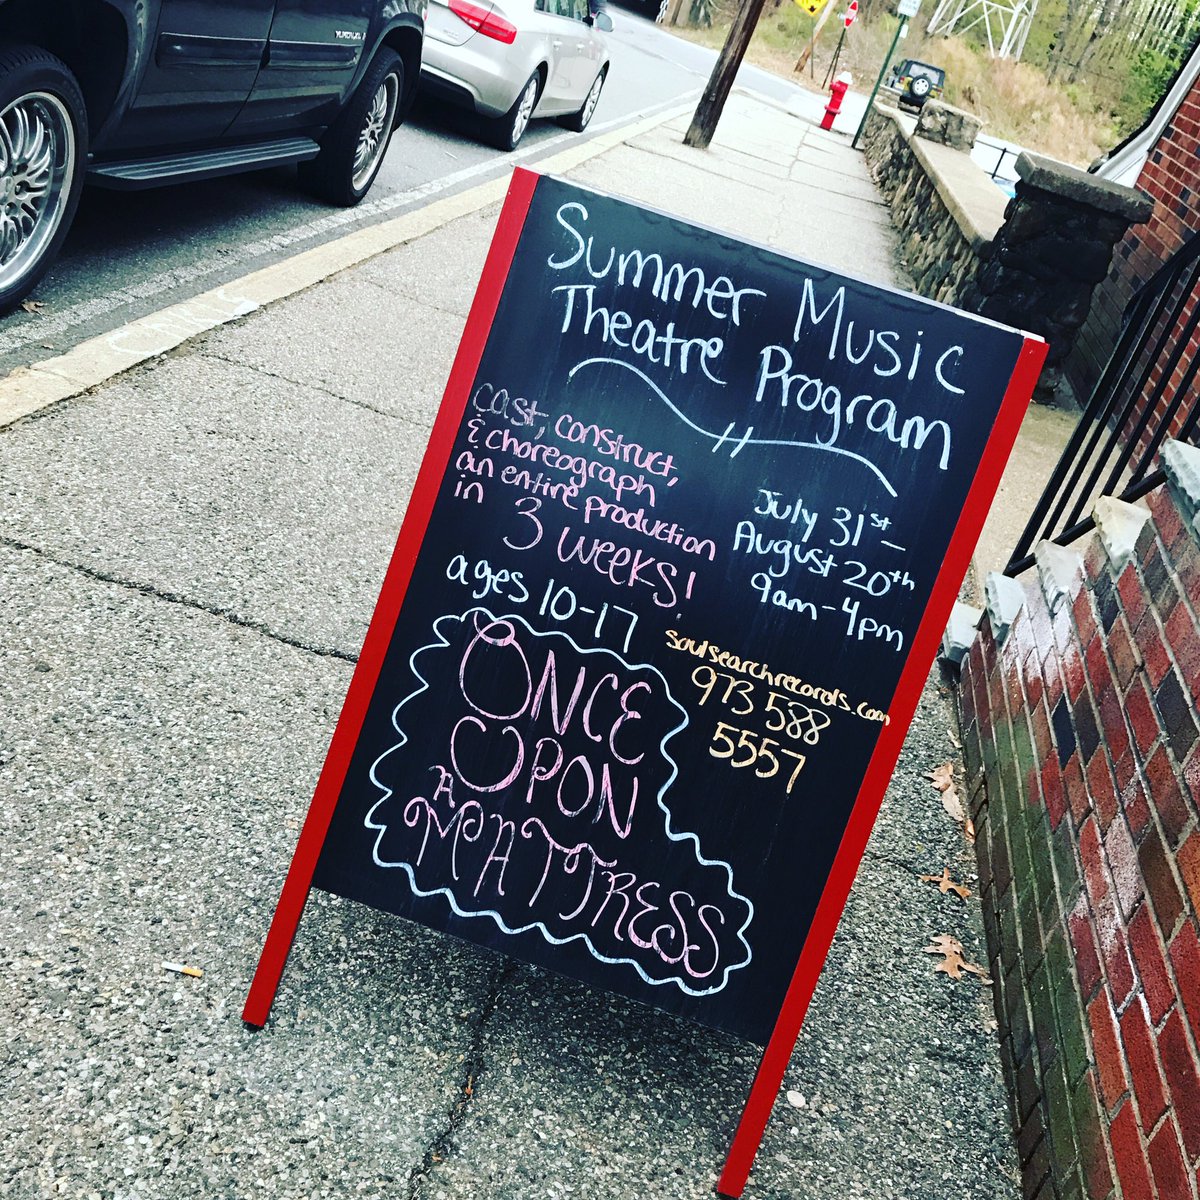 Summer Music
Theatre Program
cast, construct,
& choreograph
an entire production
in 3 weeks!
ages 10-17
July 31st –
August 20th
9am-4pm
soulsearchrecords.com
973 588
5557
ONCE
UPON
A
MATTRESS